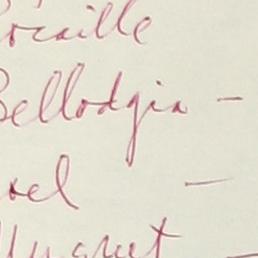 rocaille
Bellodgia –
oel –
Muguet –